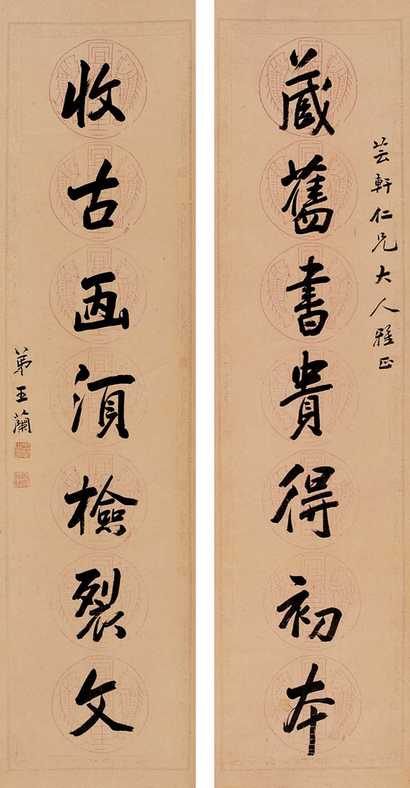 芸軒仁兄大人雅正
藏舊書貴得初本
收古画須檢裂文
弟王蘭